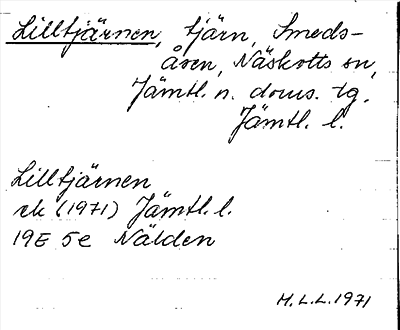 Lilltjärnen, tjärn, Smeds-
åsen, Näskotts sn,
Jämtl. n. doms. tg.
Jämtl. l.
Lilltjärnen
rk (1971) Jämtl. l.
19E 5e Nälden
H.L.L. 1971